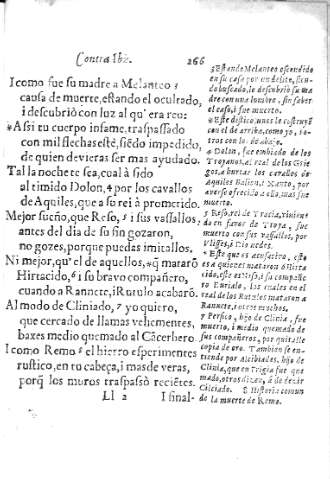 Contra Ibi.
266
I como fue su madre a Melanteo 3
causa de muerte, estando el ocultado,
i descubriò con luz al qu' era reo:
*Assi tu cuerpo infame, traspassado
con mil flechas estè, siẽdo impedido,
de quien devieras ser mas ayudado.
Tal la noche te sea, cual à sido
al timido Dolon, 4 por los cavallos
de Aquiles, que a su rei à prometido.
Mejor sueño, que Reso, 5 i sus vassallos,
antes del dia de su fin gozaron,
no gozes, porque puedas imitallos.
Ni mejor, qu' el de aquellos, *q̃ matarõ
Hirtacido, 6 i so bravo compañero,
cuando a Rannete, i Rutulo acabarõ.
Al modo de Cliniado, 7 yo quiero,
que cercado de llamas vehementes,
baxes medio quemado al Cãcerbero.
I como Remo 8 el hierro esperimentes
rustico, en tu cabeça, i mas de veras,
porq̃ los muros traspassò reciẽtes.
Ll 2
I final-
3 Estando Melanteo escondido
en su casa por un delito, siẽ-
do buscado, le descubriò su ma
dre con una lumbre, sin saber
el caso, i fue muerto.
* Este distico, unos lo construyẽ
con el de arriba, como yo, i o-
tros con lo de abajo.
4 Dolon, fue embiado de los
Troyanos, al real de los Grie
gos, a hurtar los cavallos de
Aquiles Balio, i Xanto, por
averselo ofrecido a ello, mas fue
muerto.
5 Reso, rei de Tracia, vinien-
do en favor de Troya, fue
muerto con sus vassallos, por
Ulisses, i Diomedes.
6 Perseo, hijo de Clinia, fue
muerto, i medio quemado de
sus compañeros, por quitalle
copia de oro. Tambien se en-
tiende por Alcibiades, hijo de
Clinia, que en Frigia fue que
mado, otros dizen, à de dezir
Cilciado. 8 Historia comun
de la muerte de Remo.